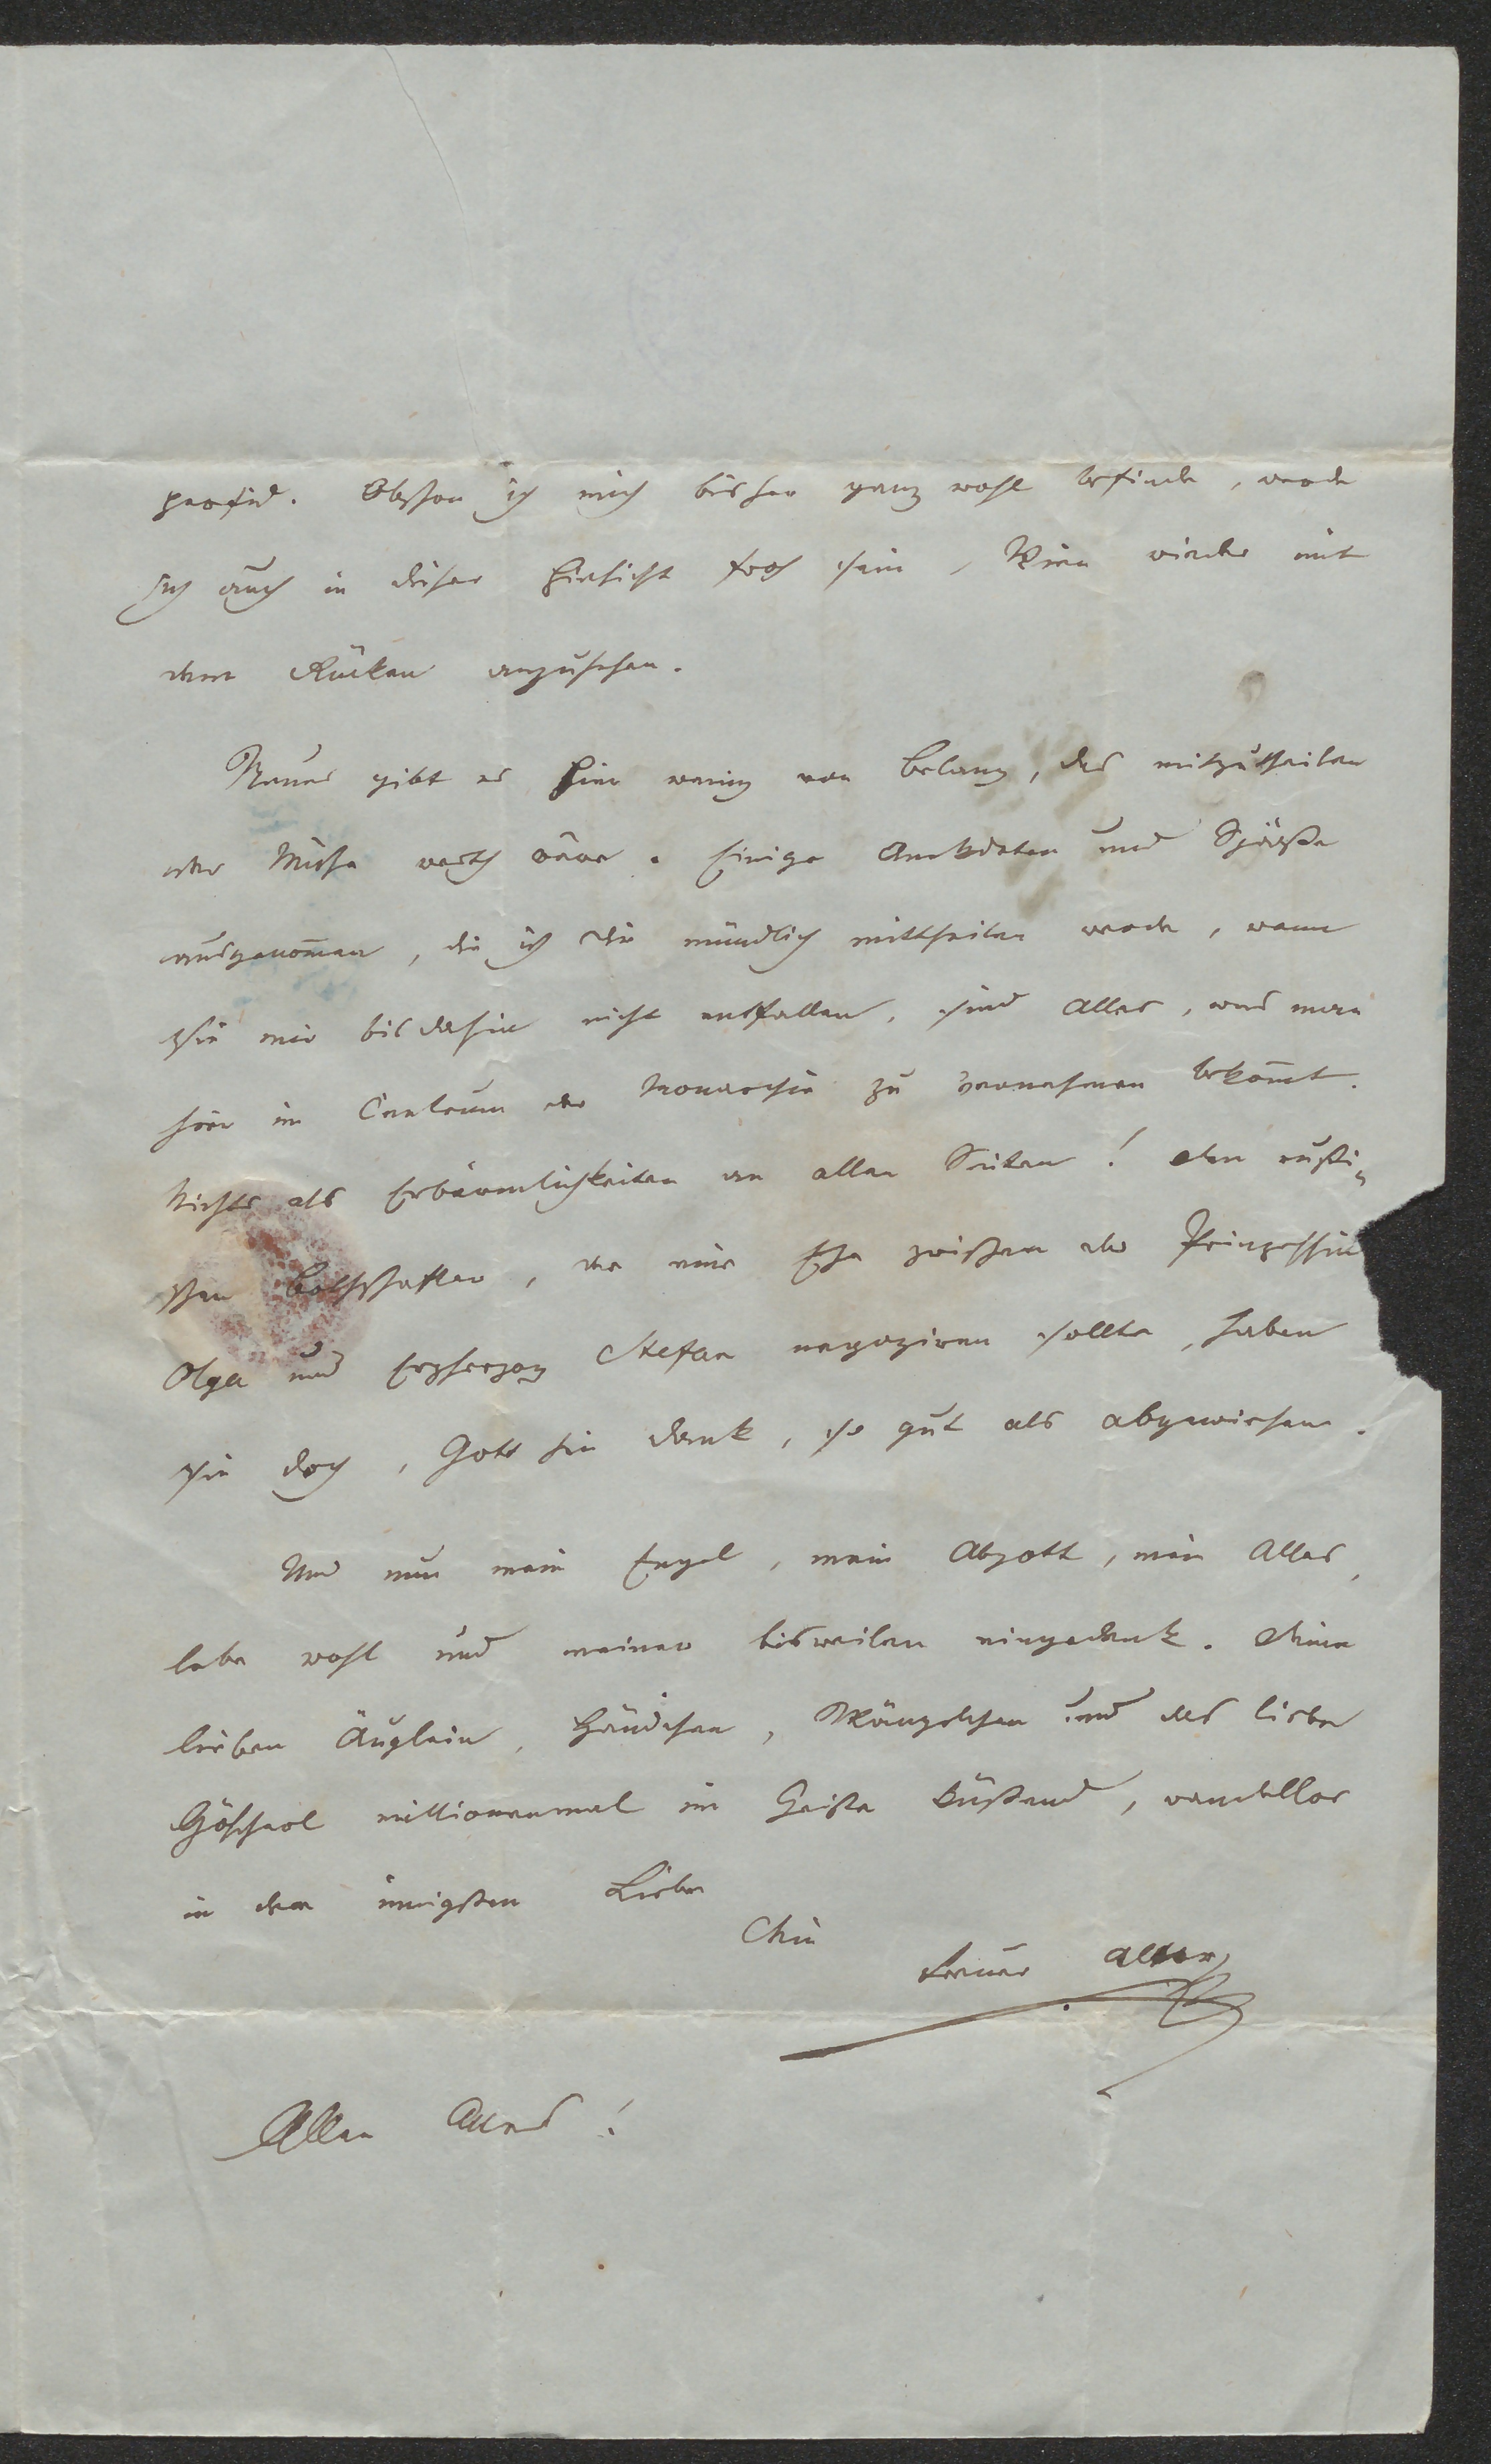 perfid. Obschon ich mich bisher ganz wohl befinde, werde
ich auch in dieser Hinsicht froh sein, Wien wieder mit
dem Rücken anzusehen.
Neues gibt es hier wenig von Belang, das mitzutheilen
der Mühe werth wäre. Einige Anekdoten und Späße
ausgenom̅en, die ich Dir mündlich mittheilen werde, wenn
sie mir bis dahin nicht entfallen, sind alles, was man
hier im Centrum der Monarchie zu vernehmen bekom̅t.
Nichts als Erbärmlichkeiten an allen Seiten! Den russi-
schen Bothschafter, der eine Ehe zwischen der Prinzessin
Olga und Erzherzog Stefan negoziren sollte, haben
sie doch, Gott sei Dank, so gut als abgewiesen.
Und nun mein Engel, mein Abgott, mein Alles,
lebe wohl und meiner bisweilen eingedenk. Deine
lieben Äuglein, Händchen, Wängelchen und das liebe
Göscherl millionenmal im Geiste küßend, wandellos
in der innigsten Liebe
Dein
treuer Alter
Allen Alles!